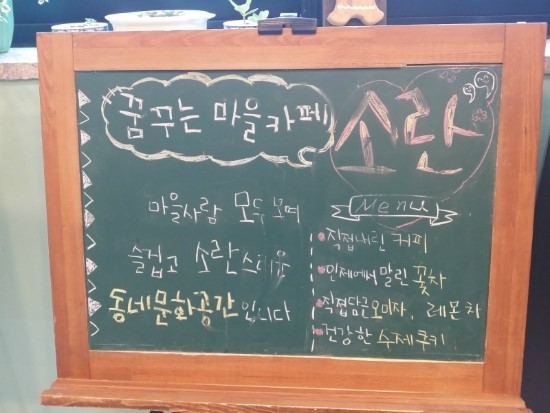 꿈꾸는 마을카페
소란
마을사람 모두 모여
즐겁고 소란스러운
동네문화공간입니다
Menu
직접내린 커피
인제에서 말린 꽃차
직접담근 오미자, 레몬차
건강한 수제쿠키